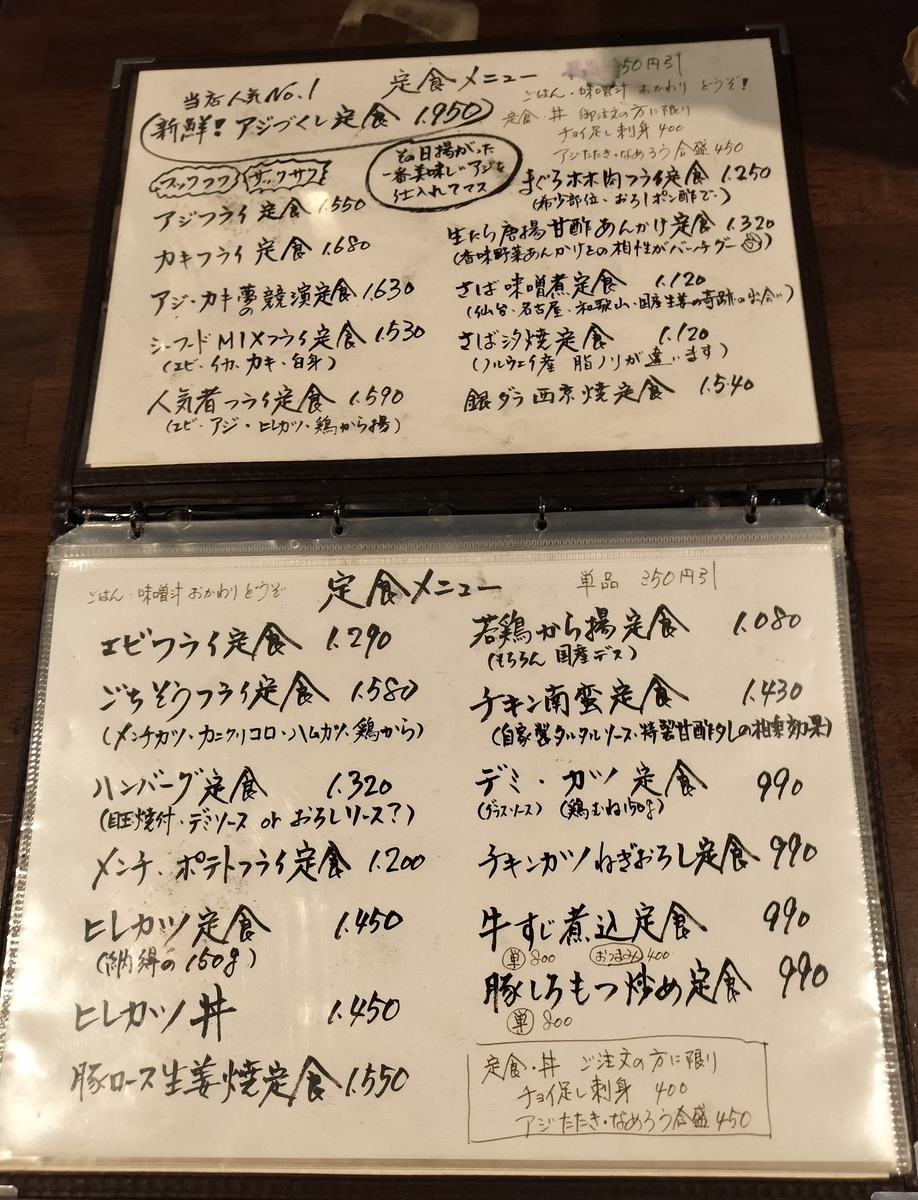 定食メニュー
単品 350円引
ごはん・味噌汁 おかわり どうぞ!
定食・丼 御注文の方に限り
チョイ足し刺身 400
アジたたき・なめろう合盛 450
当店人気No.1
新鮮!アジづくし定食 1.950
その日揚がった
一番美味しいアジを
仕入れてマス
フックフク サックサク
アジフライ定食 1.550
カキフライ定食 1.680
アジ・カキ夢の競演定食 1.630
シーフードMIXフライ定食 1.530
(エビ・イカ・カキ・白身)
人気者フライ定食 1.590
(エビ・アジ・ヒレカツ・鶏から揚)
まぐろホホ肉フライ定食 1.250
(希少部位・おろしポン酢で)
生たら唐揚甘酢あんかけ定食 1.320
(香味野菜あんかけとの相性がバッチグー)
さば味噌煮定食 1.120
(仙台・名古屋・和歌山・国産生姜の奇跡の出会い)
さば汐焼定食 1.120
(ノルウェイ産 脂ノリが違います)
銀ダラ西京焼定食 1.540
ごはん・味噌汁おかわりどうぞ
定食メニュー
単品 350円引
エビフライ定食 1.290
ごちそうフライ定食 1.580
(メンチカツ・カニクリコロ・ハムカツ・鶏から)
ハンバーグ定食 1.320
(目玉焼付・デミソース or おろしソース?)
メンチ・ポテトフライ定食 1.200
ヒレカツ定食 1.450
(納得の150g)
ヒレカツ丼 1.450
豚ロース生姜焼定食 1.550
若鶏から揚定食 1.080
(もちろん国産デス)
チキン南蛮定食 1.430
(自家製タルタルソース・特製甘酢ダレの相乗効果)
デミ・カツ定食 990
(グラスソース) (鶏むね150g)
チキンカツねぎおろし定食 990
牛すじ煮込定食 990
単 800 おつまみ 400
豚しろもつ炒め定食 990
単 800
定食・丼 ご注文の方に限り
チョイ足し刺身 400
アジたたき・なめろう合盛 450